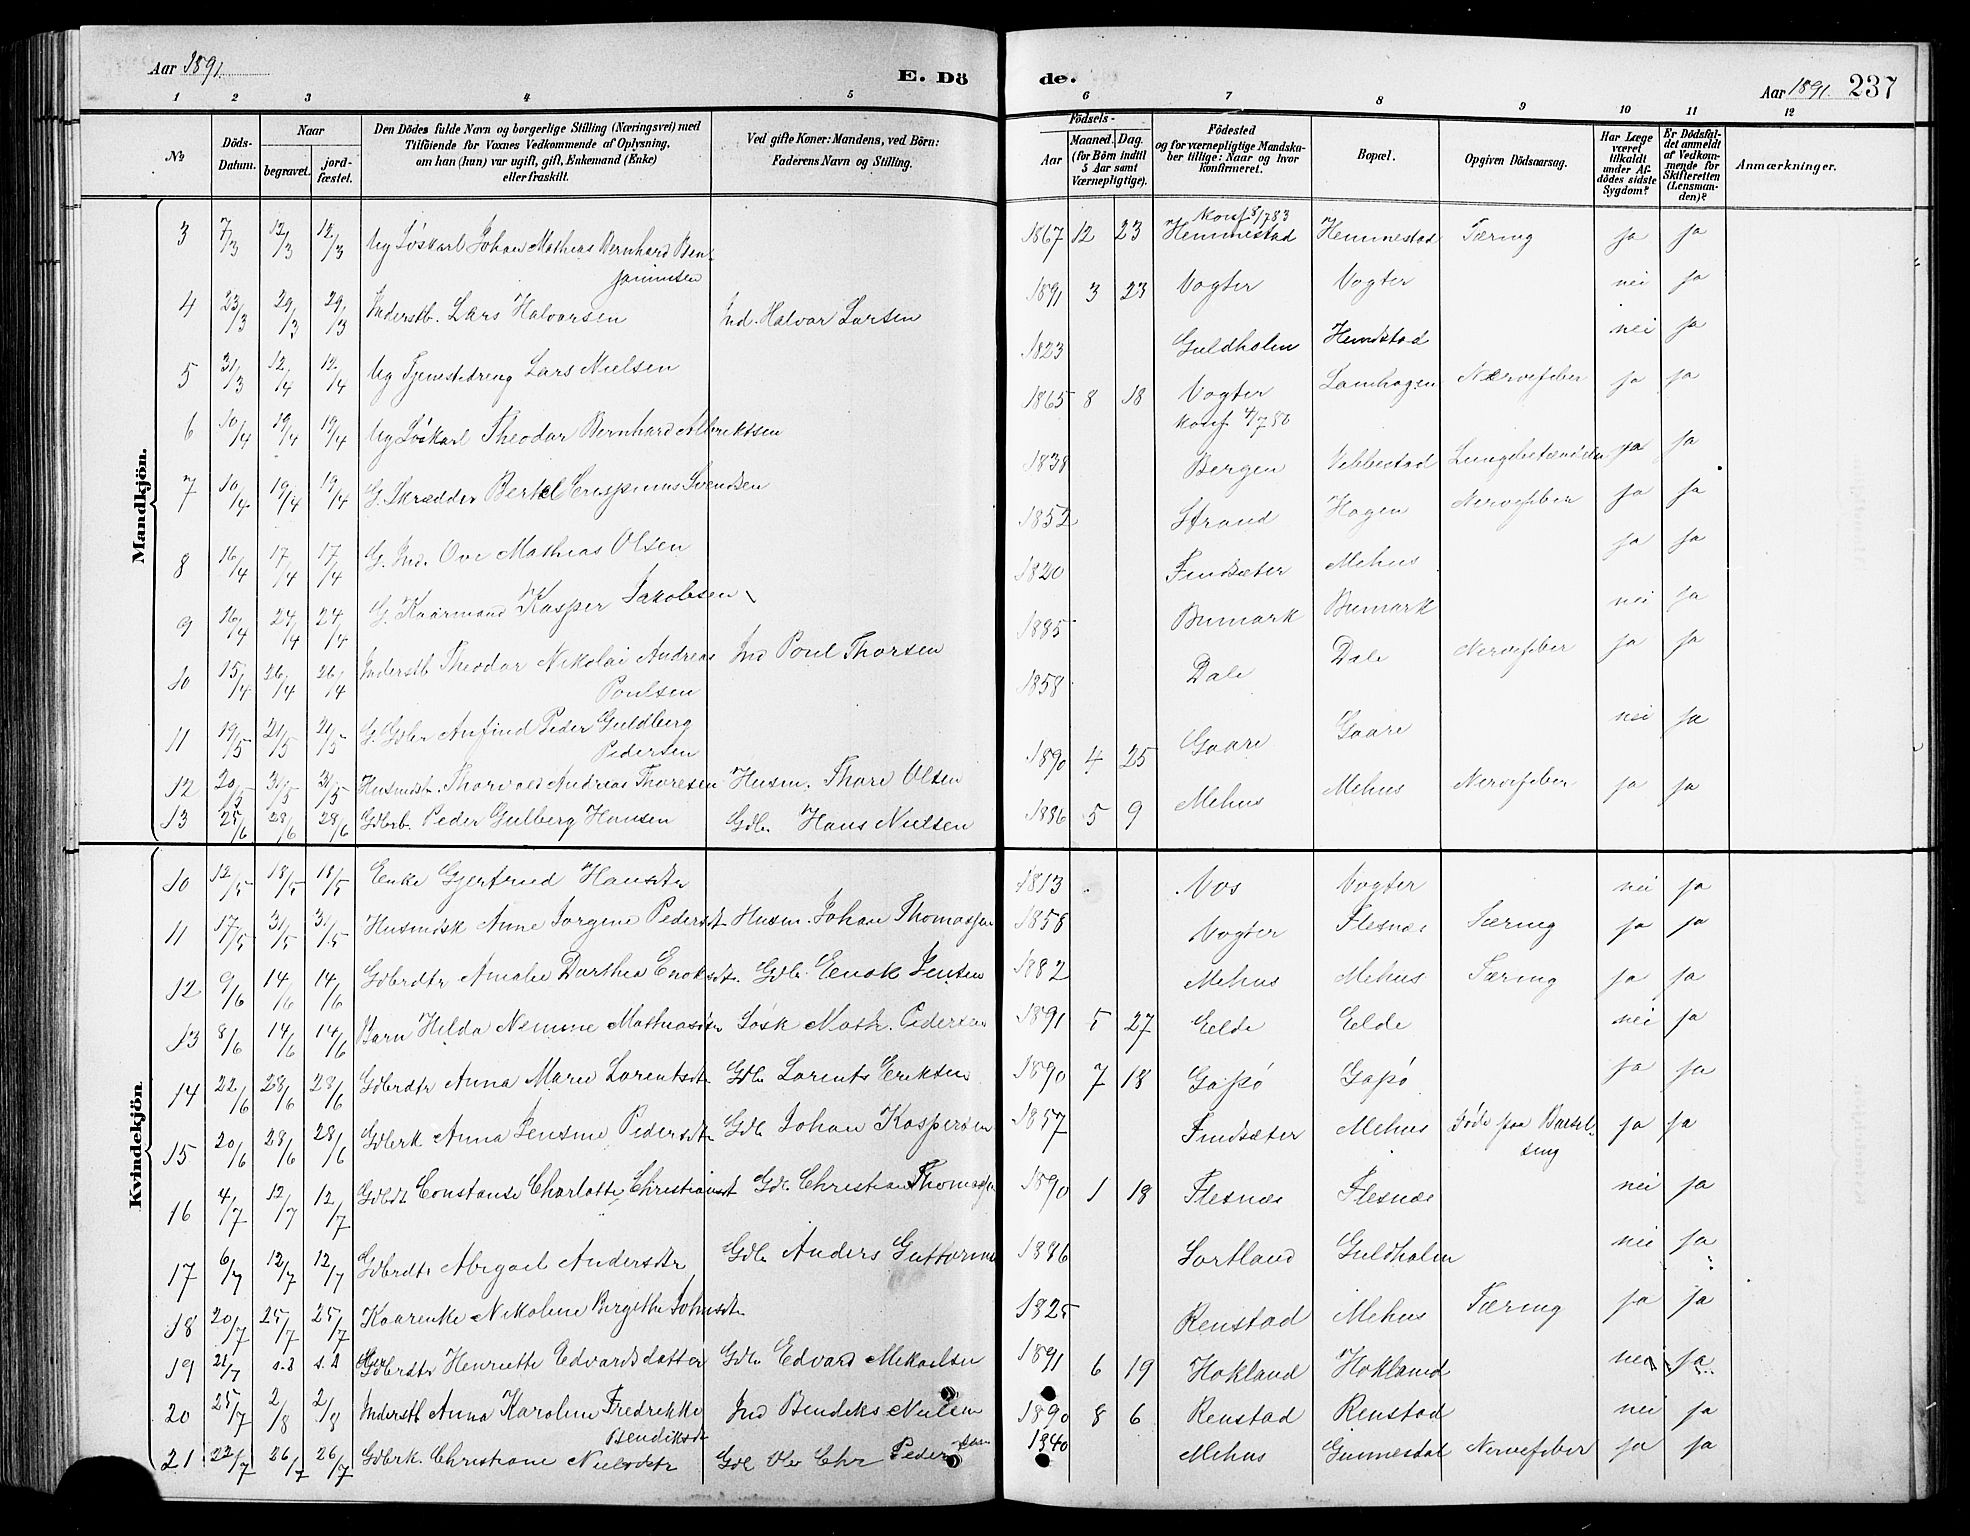 Aar 1891. E. Dö de. Aar 1891. 237
1 2 3 4 5 6 7 8 9 10 11 12
No
Döds-Datum.
Naar
begravet.
jordfæstet.
Den Dödes fulde Navn og borgerlige Stilling (Næringsvei) med
Tilföiende for Voxnes Vedkommende af Oplysning,
om han (hun) var ugift, gift, Enkemand (Enke)
eller fraskilt.
Ved gifte Koner: Mandens, ved Börn:
Faderens Navn og Stilling.
Födsels-
Aar
Maaned. Dag.
(for Börn indtil
5 Aar samt
Værnepligtige).
Födested
og for værnepligtige Mandska-
ber tillige: Naar og hvor
konfirmeret.
Bopæl.
Opgiven Dödsaarsag.
Har Læge
været
tilkaldt
under Af-
dödes sidste
Sygdom?
Er Dödsfal-
det anmeldt
af Vedkom-
mende for
Skifteretten
(Lensman-
den)?
Anmærkninger.
Mandkjön.
3 7/3 12/3 12/3 Ug Søskarl Johan Mathias Bernhard Ben-
jaminsen 1867 12 23 Konf 8/7 83 Hemmestad Hemmestad Tæring ja ja
4 23/3 29/3 29/3 Inderstb. Lars Halvorsen Ind. Halvor Larsen 1891 3 23 Vogter Vogter nei ja
5 31/3 12/4 12/4 Ug Tjenestedreng Lars Nielsen 1823 Guldholm Hemstad nei ja
6 10/4 19/4 19/4 Ug Søskarl Theodor Bernhard Albriktsen 1865 8 18 Vogter Lamhagen Nervefeber ja ja
Konf 4/7 80
7 10/4 19/4 19/4 G. Skrædder Bertel Crispinus Svendsen 1838 Bergen Vebbestad Lungebetændelse ja ja
8 16/4 17/4 17/4 G. Ind. Ove Mathias Olsen 1852 Strand Hagen Nervefeber ja ja
9 16/4 24/4 24/4 G. Kaarmand Kasper Jakobsen 1820 Findsæter Mehus ja ja
10 15/4 26/4 26/4 Inderstb Theodor Nikolai Andreas
Poulsen Ind Poul Thorsen 1885 Bumark Bumark nei ja
11 19/5 21/5 21/5 G. Gdbr Anfind Peder Guldberg
Pedersen 1858 Dale Dale Nervefeber ja ja
12 20/5 31/5 31/5 Husmdst. Thorvald Andreas Thoresen Husm. Thore Olsen 1890 4 25 Gaare Gaare nei ja
13 25/6 28/6 28/6 Gdbrb. Peder Gulberg Hansen Gdbr Hans Nielsen 1886 5 9 Mehus Mehus Nervefeber ja ja
Kvindekjön.
10 12/5 18/5 18/5 Enke Gjertrud Hansdtr 1813 Vos Vogter nei ja
11 17/5 31/5 31/5 Husmdsk Anne Jorgine Pedersdt Husm. Johan Thomassen 1858 Vogter Flesnæs Tæring ja ja
12 9/6 14/6 14/6 Gdbrdtr Amalie Dorthea Enoksdtr. Gdb. Enok Jensen 1882 Mehus Mehus Tæring ja ja
13 8/6 14/6 14/6 Barn Hilda Nimine Mathiasdtr Søsk Math. Pedersen 1891 5 27 Eelde Eelde nei ja
14 22/6 28/6 28/6 Gdbrdtr Anna Marie Lorentsdt Gdbr Lorents Eriksen 1890 7 18 Gapø Gapø ja ja
15 20/6 28/6 28/6 Gdbrk Anna Jensine Pedersdtr Gdb Johan Kaspersen 1857 Findsæter Mehus Døde paa Barsel-
seng ja ja
16 4/7 12/7 12/7 Gdbdt Constanse Charlotte Christiansdt Gdb. Christian Thomassen 1890 1 18 Flesnæs Flesnæs nei ja
17 6/7 12/7 12/7 Gdbrdtr Abigael Andersdtr Gdb Anders Guttorms 1886 Sortland Guldholm nei ja
18 20/7 25/7 25/7 Kaarenke Nikoline Bergithe Johnsdtr 1825 Renstad Mehus Tæring ja ja
19 21/7 s.d s.d Gdbrdtr Henriette Edvardsdatter Gdb Edvard Mikaelsen 1891 6 19 Hokland Hokland nei ja
20 25/7 2/8 2/8 Inderstb Anna Karoline Fredrikke
Bendiksdt Ind Bendiks Nielsen 1890 8 6 Renstad Renstad nei ja
21 22/7 26/7 26/7 Gdbrk Christiane Nielsdtr Gdb Chr Pedersen 1840 Mehus Gunnestad Nervefeber ja ja